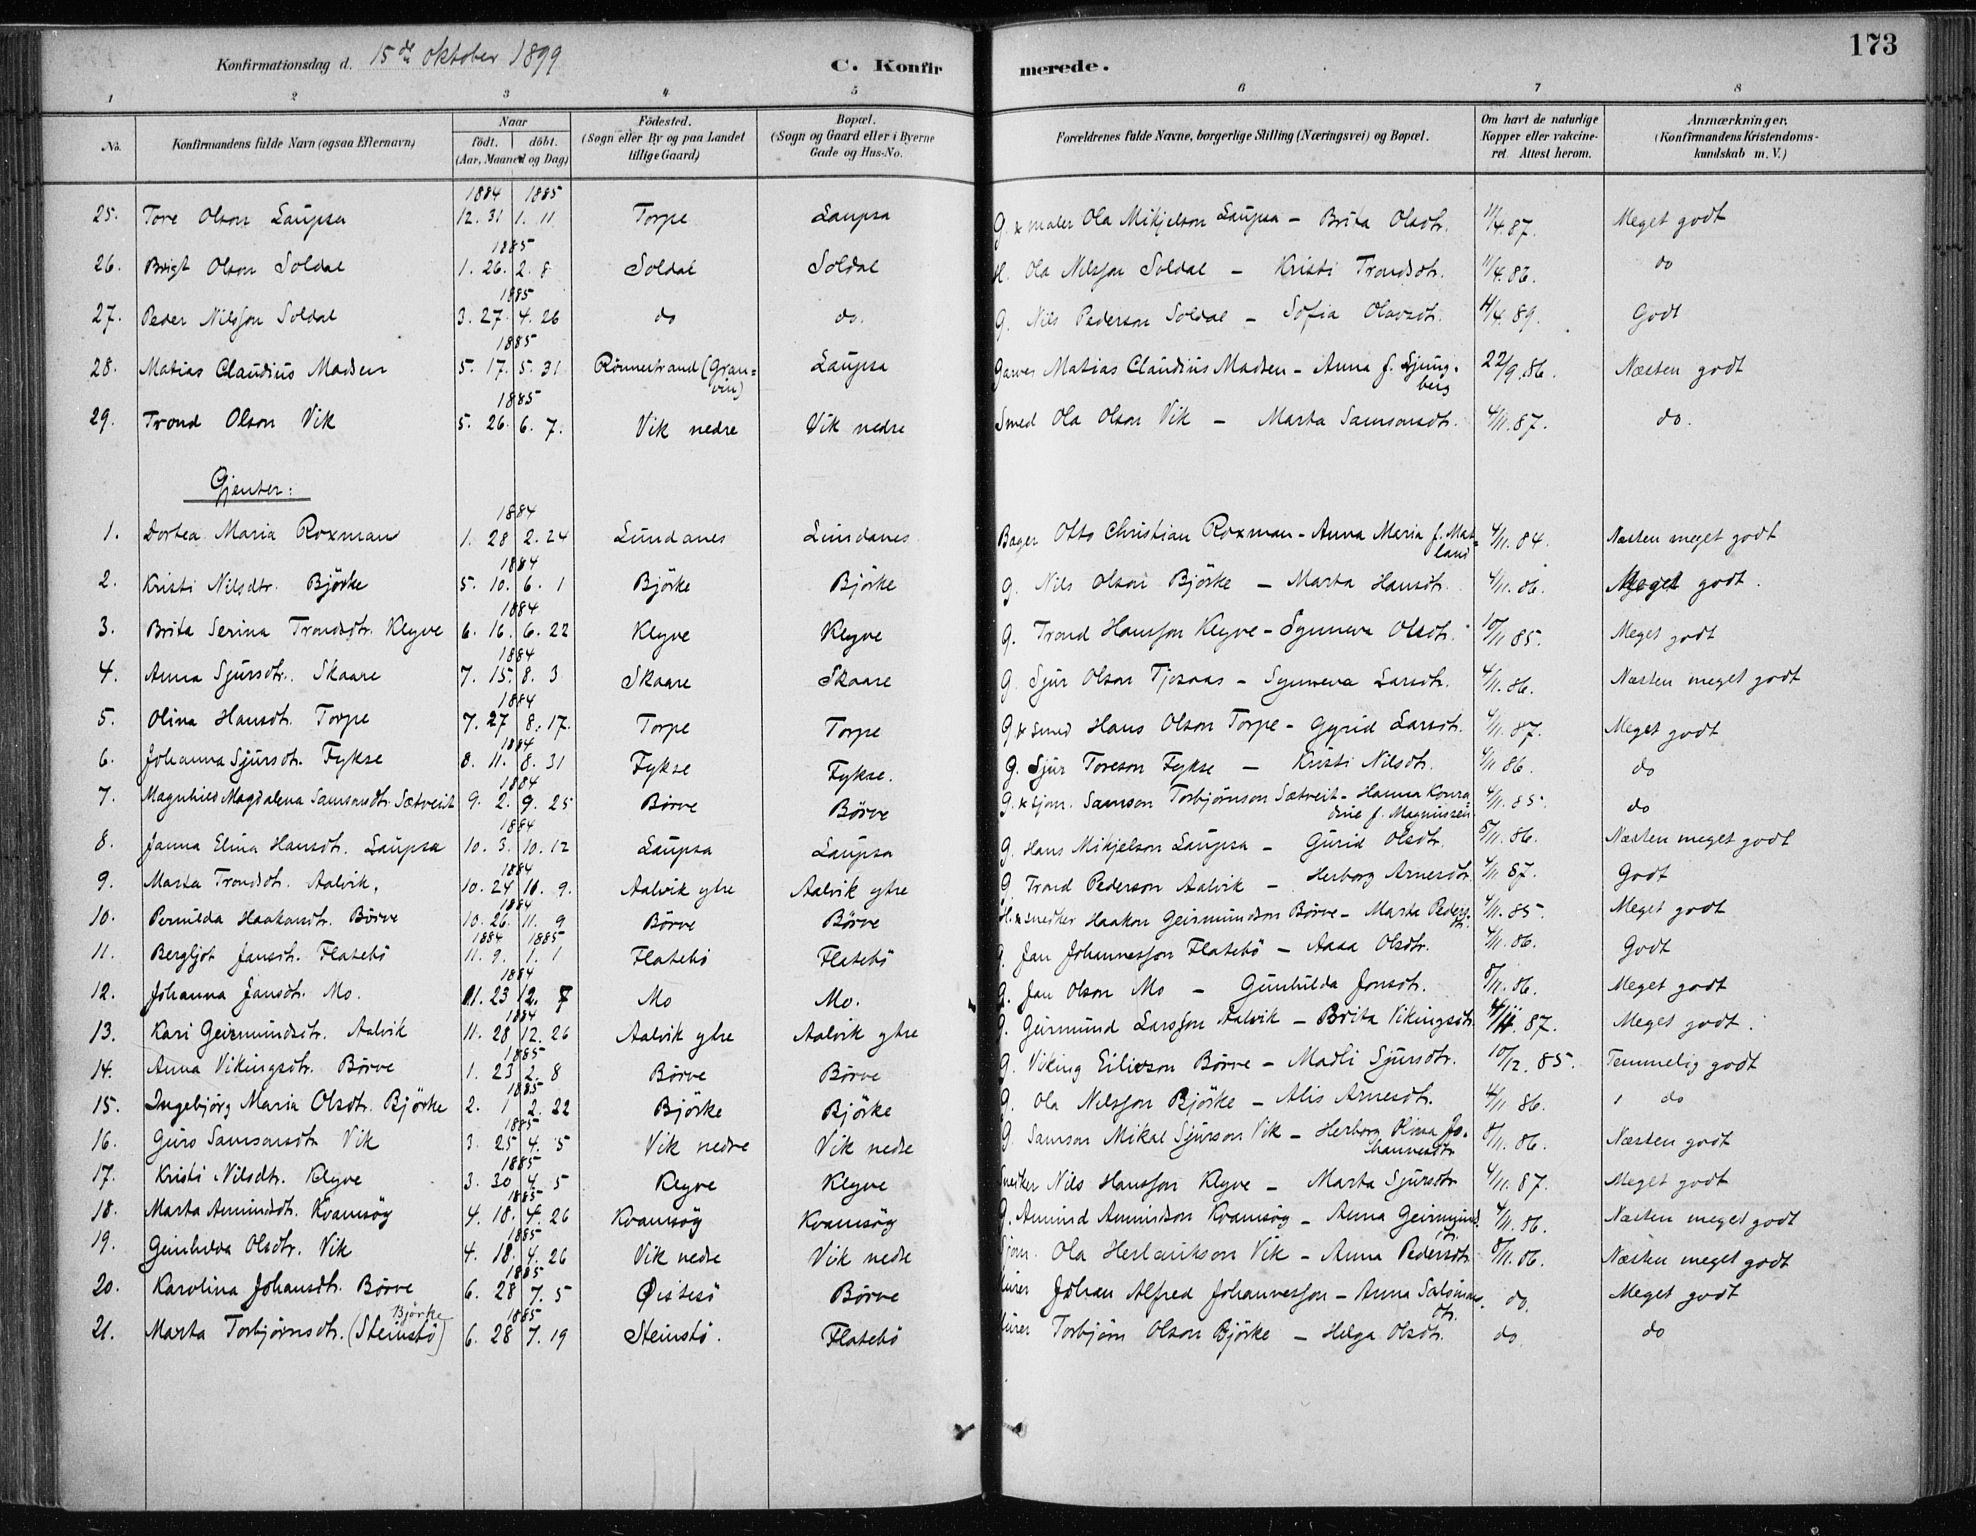 173
Konfirmationsdag d. 15de oktober 1899 C. Konfirmerede.
1 2 3 4 5 6 7 8
No. Konfirmandens fulde Navn (ogsaa Efternavn) Naar födt. döbt. (Aar, Maaned og Dag) Födested. (Sogn eller By og paa Landet tillige Gaard) Bopæl. (Sogn og Gaard eller i Byerne Gade og Hus-No. Forældrenes fulde Navne, borgerlige Stilling (Næringsvei) og Bopæl. Om havt de naturlige Kopper eller vakcineret. Attest herom. Anmærkninger. (Konfirmandens Kristendomskundskab m. V.)
1884 1885
25. Tore Olson Laupsa 12. 31 1. 11 Torpe Laupsa G. & maler Ola Mikjelson Laupsa - Brita Olsdtr. 11/4. 87. Meget godt
1885
26. Brigt Olson Soldal 1. 26. 2. 8 Soldal Soldal H. Ola Nilsson Soldal - Kristi Trondsdtr. 11/4. 86. do
1885
27. Peder Nilsson Soldal 3. 27. 4. 26 do do. G. Nils Pederson Soldal - Sofia Olavsdtr. 4/4. 89. Godt
1885
28. Matias Claudius Madsen 5. 17. 5. 31 Rönnestrand (Granvin) Laupsa Garver Matias Claudius Madsen - Anna f. Ljungberg 22/9. 86. Næsten godt
1885
29. Trond Olson Vik 5. 26. 6. 7. Vik nedre Vik nedre Smed Ola Olson Vik - Marta Samsonsdtr. 4/11. 87. do.
Gjenter:
1884
1. Dortea Maria Roxman 1. 28 2. 24 Lundanes Lundanes Bager Otto Christian Roxman - Anna Maria f. Matland 4/11. 84. Næsten meget godt
1884
2. Kristi Nilsdtr. Björke 5. 10. 6. 1 Björke Björke G. Nils Olson Björke - Marta Hansdtr. 4/11. 86. Meget godt.
1884
3. Brita Serina Trondsdtr. Klyve 6. 16. 6. 22 Klyve Klyve G. Trond Hansson Klyve - Synneva Olsdtr. 10/11 85. Meget godt
1884
4. Anna Sjursdtr. Skaare 7. 15. 8. 3 Skaare Skaare G. Sjur Olson Tjosaas - Synneva Larsdtr. 4/11. 86. Næsten meget godt
1884
5. Olina Hansdtr. Torpe 7. 27 8. 17. Torpe Torpe G & smed Hans Olson Torpe - Gyrid Larsdtr. 4/11. 87. Meget godt
1884
6. Johanna Sjursdtr. Fykse 8. 11. 8. 31 Fykse Fykse. G. Sjur Toreson Fykse - Kristi Nilsdtr. 4/11 86. do
1884
7. Magnhild Magdalena Samsonsdtr. Sætveit 9. 2. 9. 25 Börve Börve G. & sjom. Samson Torbjörnson Sætveit - Hanna Konradine f. Magnussen 4/11. 85. do
1884
8. Janna Elina Hansdtr. Laupsa 10. 3. 10. 12 Laupsa Laupsa G. Hans Mikjelson Laupsa - Gurid Olsdtr. 5/11. 86. Næsten meget godt
1884
9. Marta Trondsdtr. Aalvik. 10. 24 11. 9. Aalvik ytre Aalvik ytre G. Trond Pederson Aalvik - Herborg Arnesdtr. 4/11 87. Godt
1884
10. Pernilda Haakonsdtr. Börve 10. 26. 11. 9 Börve Börve H. & snedker Haakon Geirmundson Börve - Marta Pedersdtr. 4/11. 85. Meget godt
1884 1885
11. Bergljot Jansdtr. Flatebö 11. 9. 1. 1 Flatebö Flatebö G. Jan Johannesson Flatebö - Aasa Olsdtr. 4/11. 86. Godt
1884
12. Johanna Jansdtr. Mo. 11. 23 12. 7 Mo Mo. G. Jan Olson Mo - Gunhilda Jonsdtr. 5/11. 86. Meget godt
1884
13. Kari Geirmundsdtr. Aalvik 11. 28 12. 26 Aalvik ytre Aalvik ytre G. Geirmund Larsson Aalvik - Brita Vikingsdtr. 4/11. 87. Meget godt.
1885
14. Anna Vikingsdtr. Börve 1. 23 2. 8 Börve Börve G. Viking Eilivson Börve - Madli Sjursdtr. 10/12. 85. Temmelig godt
1885
15. Ingebjörg Maria Olsdtr. Björke 2. 1 2. 22 Björke Björke G. Ola Nilsson Björke - Alis Arnesdtr. 4/11. 86. do
1885
16. Guro Samsonsdtr Vik 3. 25 4. 5 Vik nedre Vik nedre G. Samson Mikal Sjurson Vik - Herborg Johannesdtr 5/11. 86. Næsten godt
1885
17. Kristi Nilsdtr. Klyve 3. 30 4. 5 Klyve Klyve Snedker Nils Hansson Klyve - Marta Sjursdtr 4/11. 87. Meget godt
1885
18. Marta Amundsdtr. Kvamsöy 4. 18. 4. 26 Kvamsöy Kvamsöy G. Amund Amundson Kvamsöy - Anna Geirmundsdtr. 4/11. 86. Næsten meget godt
1885
19. Gunhilda Olsdtr. Vik 4. 18. 4. 26 Vik nedre Vik nedre Sjom. Ola Herlaukson Vik - Anna Pedersdtr. 5/11. 86. Næsten meget godt
1885
20. Karolina Johansdtr. Börve 6. 28 7. 5 Öistesö Börve Johan Alfred Johannesson - Anna Salomonsdtr. do. Meget godt
1885
21. Marta Torbjörnsdtr. (Steinstö) Björke 6. 28 7. 19 Steinstö. Flatebö Torbjörn Olson Björke - Helga Olsdtr. do do